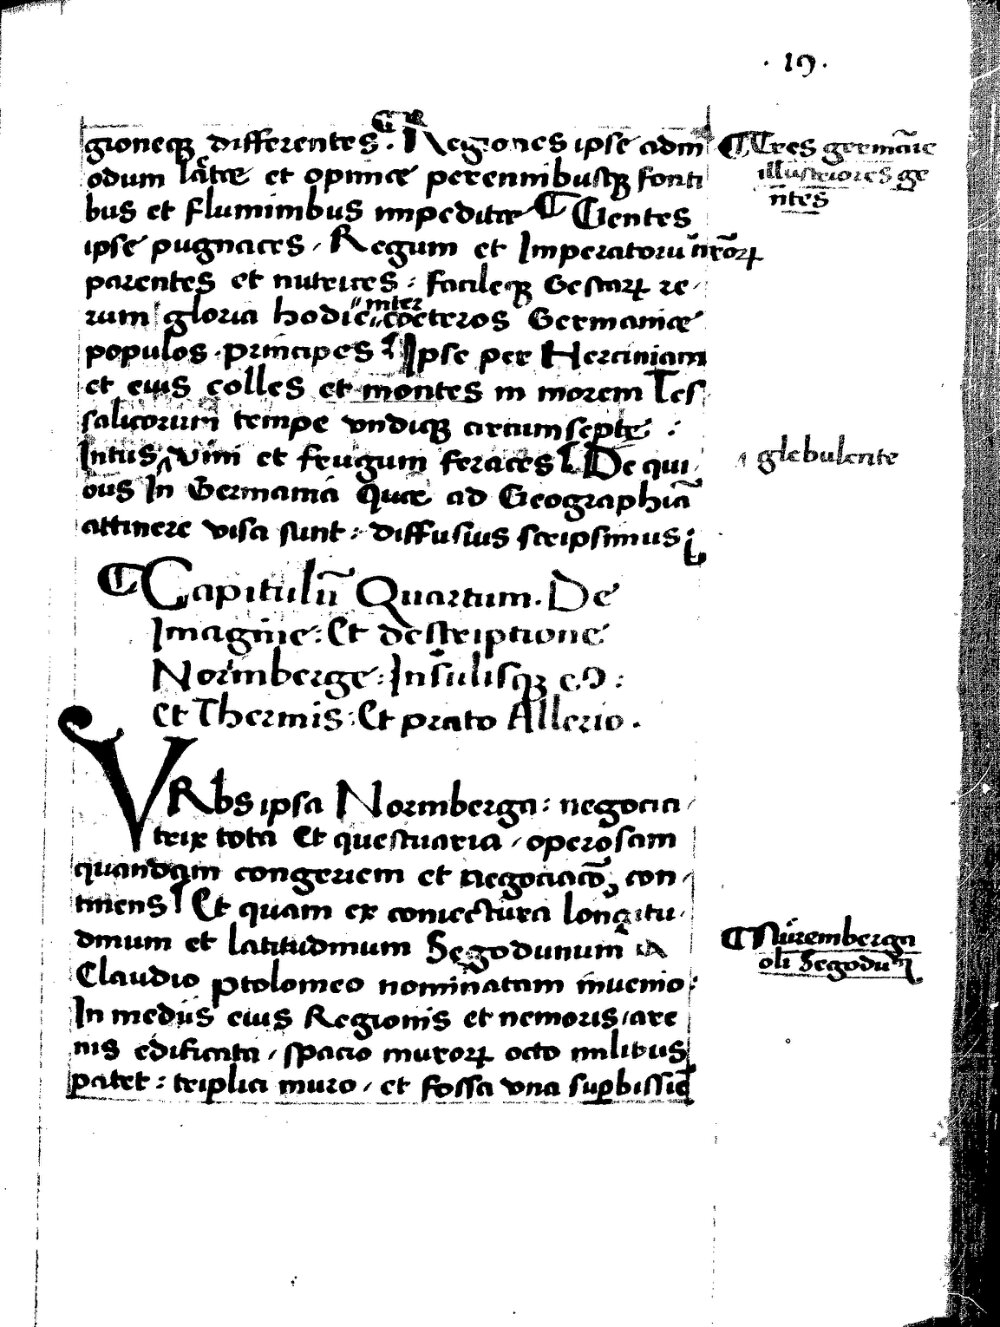 · 19 ·
gioneqꝫ differentes. Regiones ipse adm
odum late et opimæ perennibusqꝫ fonti
bus et fluminibus impeditæ Gentes
ipse pugnaces, Regum et Imperatorū nr̄oꝝ
parentes et nutrices: facileqꝫ Gestaꝝ re,
rum gloria hodie inter cœteros Germaniæ
populos. principes Ipse per Herciniam
et eius colles et montes in morem Tes
salicorum tempe vndiqꝫ circumsepte:
Intus vini et frugum feraces De qui,
bus In Germania Quæ ad Geographiā
attinere visa sunt: diffusius scripsimus;
Capitulū Quartum. De
Imagine: Et descriptione
Normberge: Insulisqꝫ
et Thermis: Et prato Allerio.
VRbs ipsa Normberga: negocia,
trix tota Et questuaria, operosam
quandam congeriem et con,
tinens Et quam ex coniectura longitu,
dinum et latitudinum Segodunum a
Claudio ptolomeo nominatam inuenio:
In mediis eius Regionis et nemoris, are
nis edificata, spacio muroꝝ octo milibus
patet: triplici muro, et fossa vna suꝑbissīe
Tres germanie
illustriores ge
ntes
glebulente
Nuremberga
oli Segodu